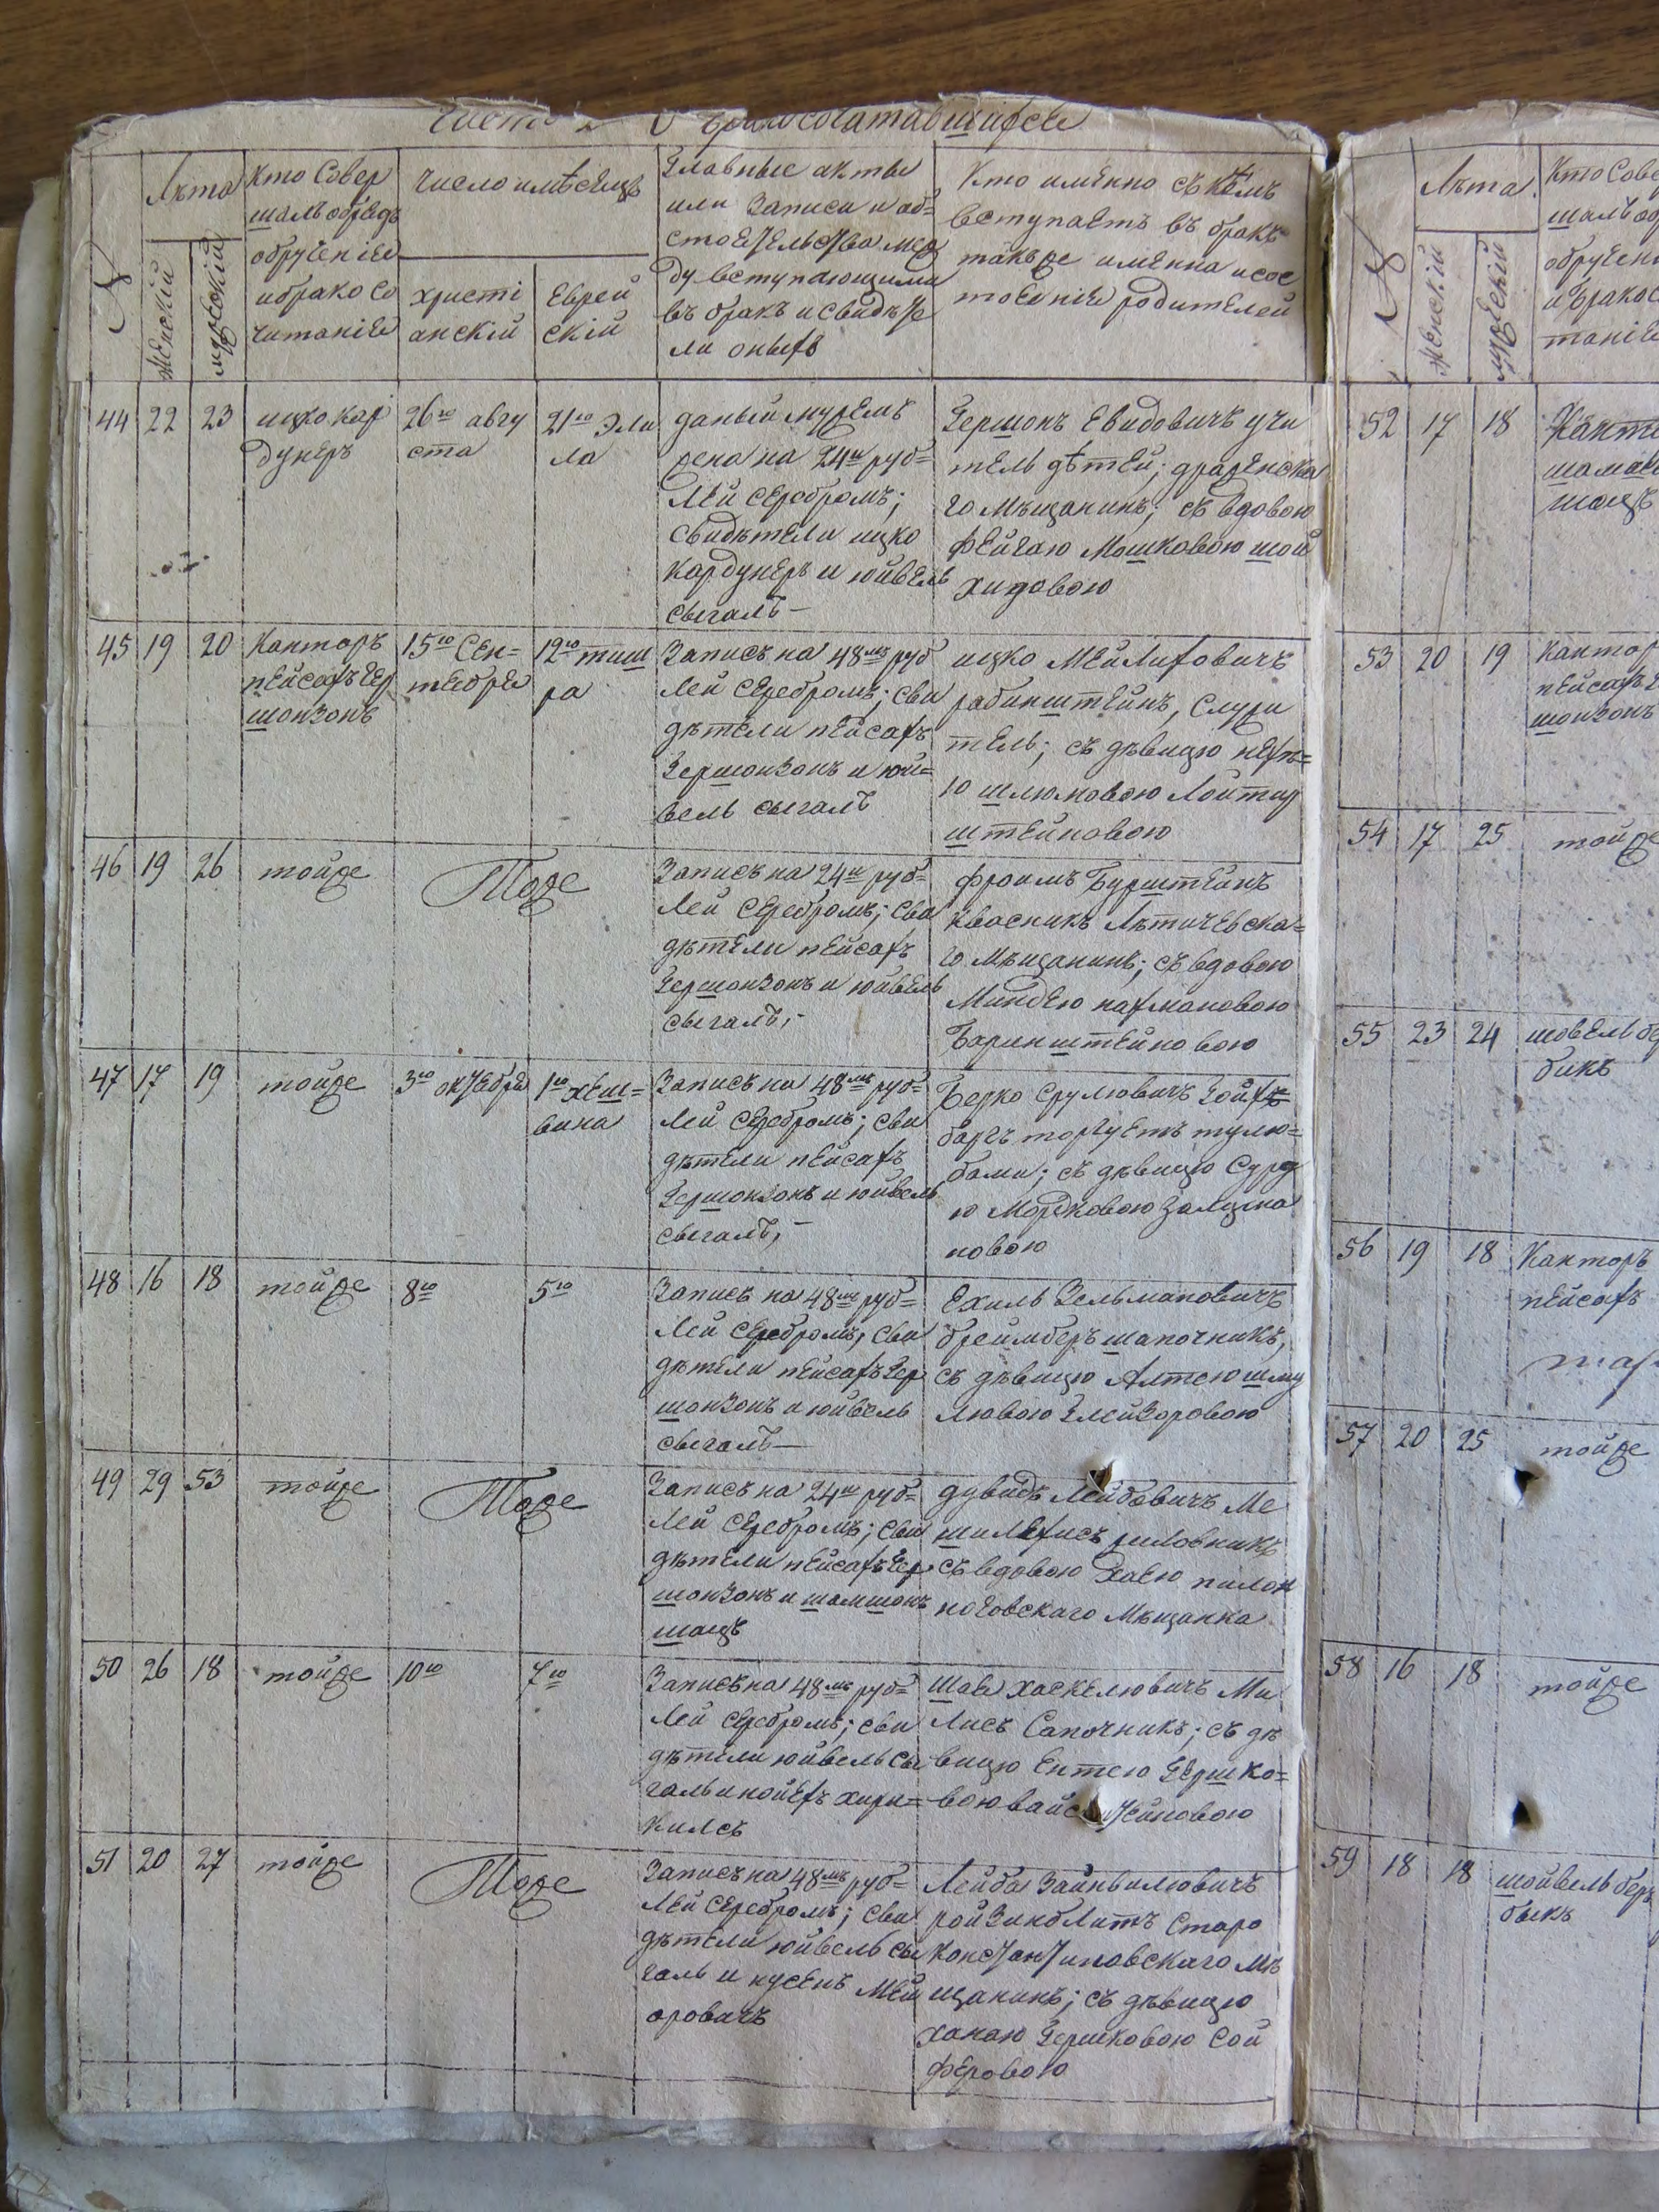 О бракосочатавшихся
№
Лѣта
Женскій
мужескій
Кто Совер
шалъ обрядъ
обрученіе
и брако со
читаніе
число и мѣсяцъ
христі
анскій
Еврей
скій
Главные акты
или Записи и об=
стоятельства меж
ду вступающими
въ бракъ и свидѣте
ли оныхъ
Кто имянно съ кемъ
вступаетъ въ бракъ
такъже имянна и сос
тояніе родителей
44
22
23
ицко кар
дунеръ
26го авгу
ста
21го Эли
ла
даный мужемъ
жена на 24и руб=
лей серебромъ;
свидѣтели ицко
Кардунеръ и юйвель
сыгалъ —
Гершонъ Евидовичъ учи
тель дѣтей; дражнска
го Мѣщанинъ; съ вдовою
фейгаю Мошковою шой
хидовою
45
19
20
Канторъ
пейсахъ гер
шонзонъ
15го Сен=
тебря
12го тиш
ра
Записъ на 48мъ руб
лей серебромъ; сви
дѣтели пейсахъ
Гершонзонъ и юй=
вель сыгалъ
ицко Мейлиховичъ
рабинштейнъ, служи
тель; съ дѣвицю нехъ=
ю шлюмовою Лойтер
штейновою
46
19
26
тойже
Тоже
Записъ на 24и руб=
лей серебромъ; сви
дѣтели пейсахъ
Гершонзонъ и юйвель
сыгалъ,-
фроимъ Бурштейнъ
Квасникъ Лѣтичевска=
го Мѣщанинъ; съ вдовою
Миндею нахмановою
Баринштейновою
47
17
19
тойже
3го октября
1го хеш=
вина
Записъ на 48мъ руб=
лей серебромъ; сви
дѣтели пейсахъ
Гершонзонъ и юйвель
сыгалъ,-
Берко Срулювичъ Гойхъ=
баргъ торгуетъ тулю=
бами; съ дѣвицю Сурю
ю Мордковою Залцма
новою
48
16
18
тойже
8го
5го
Записъ на 48мъ руб=
лей серебромъ, сви
дѣтели пейсахъ Гер
шонзонъ и юйвель
сыгалъ —
Ехиль Зельмановичъ
бреимберъ шапочникъ,
съ дѣвицю Алтею шму
лювою Глейзоровою
49
29
53
тойже
Тоже
Записъ на 24и руб=
лей серебромъ; сви
дѣтели пейсахъ Гер
шонзонъ и шамшонъ
шацъ
дувидъ Лейбовичъ Ме
шилехисъ
съ вдовою Хаею пилон
ноговскаго Мѣщанка
50
26
18
тойже
10го
7го
Записъ на 48мъ руб=
лей серебромъ; сви
дѣтели юйвель сы
галь и нойехъ хири=
килсъ
Шая хаскелювичъ Ми
лисъ Сапочникъ; съ дѣ
вицю Ентею Гершко=
вою вайсштейновою
51
20
27
тойже
Тоже
Записъ на 48мъ руб=
лей серебромъ; сви
дѣтели юйвель сы
галь и нусенъ Мей
оровичъ
Лейба Зайнвилювичъ
ройзинблитъ Старо
константиновскаго мѣ
щанинъ; съ дѣвицю
ханаю Гершковою Сой
феровою
№
Лѣта
Женскій
мужескій
Кто Сове
шалъ об
обручені
и бракос
таніе
52
17
18
Канто
шацъ
53
20
19
Кантор
пейсахъ г
шонзонъ
54
17
25
тойже
55
23
24
шовель бе
бикъ
56
19
18
Канторъ
пейсахъ
57
20
25
тойже
58
16
18
тойже
59
18
18
шойвель бер
быкъ